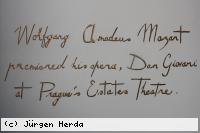 Wolfgang Amadeus Mozart
premiered his opera, Don Giovani
at Prague's Estates Theatre.
(c) Jürgen Herda